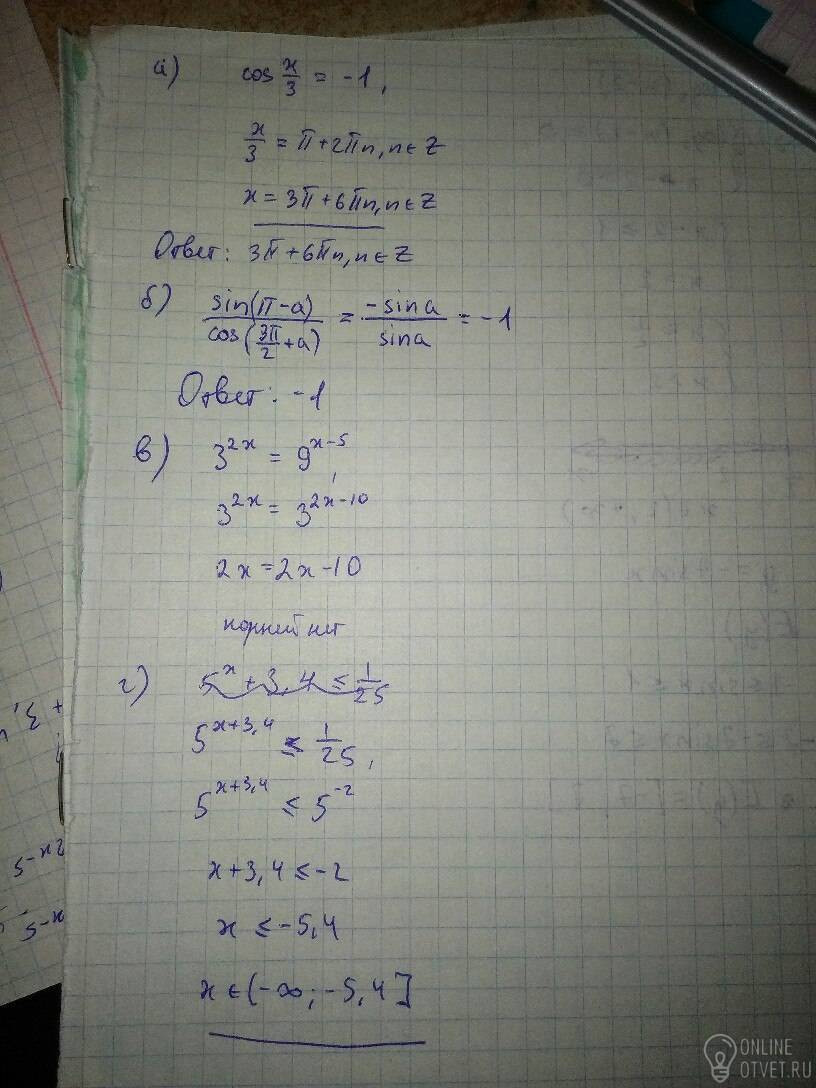 а) cos x/3 = -1,
x/3 = π+2πn, n∈Z
x = 3π+6πn, n∈Z
Ответ: 3π+6πn, n∈Z
б) sin(π-a)/cos(3π/2+a) = -sina/sina = -1
Ответ: -1
в) 3^2x = 9^x-5
3^2x = 3^2x-10
2x = 2x-10
корней нет
г) 5^x + 3,4 ≤ 1/25
5^x+3,4 ≤ 1/25,
5^x+3,4 ≤ 5^-2
x+3,4 ≤ -2
x ≤ -5,4
x ∈ (-∞; -5,4]
5-x
5-x
ONLINE
OTVET.RU